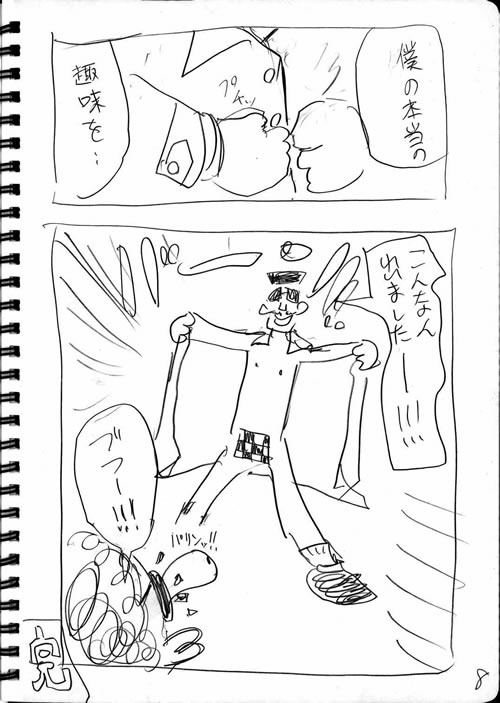 僕の本当の
趣味を…
プチッ
こんなん
れいました
ー!!!!
ブフー!!!
パリンッ!!
完
8